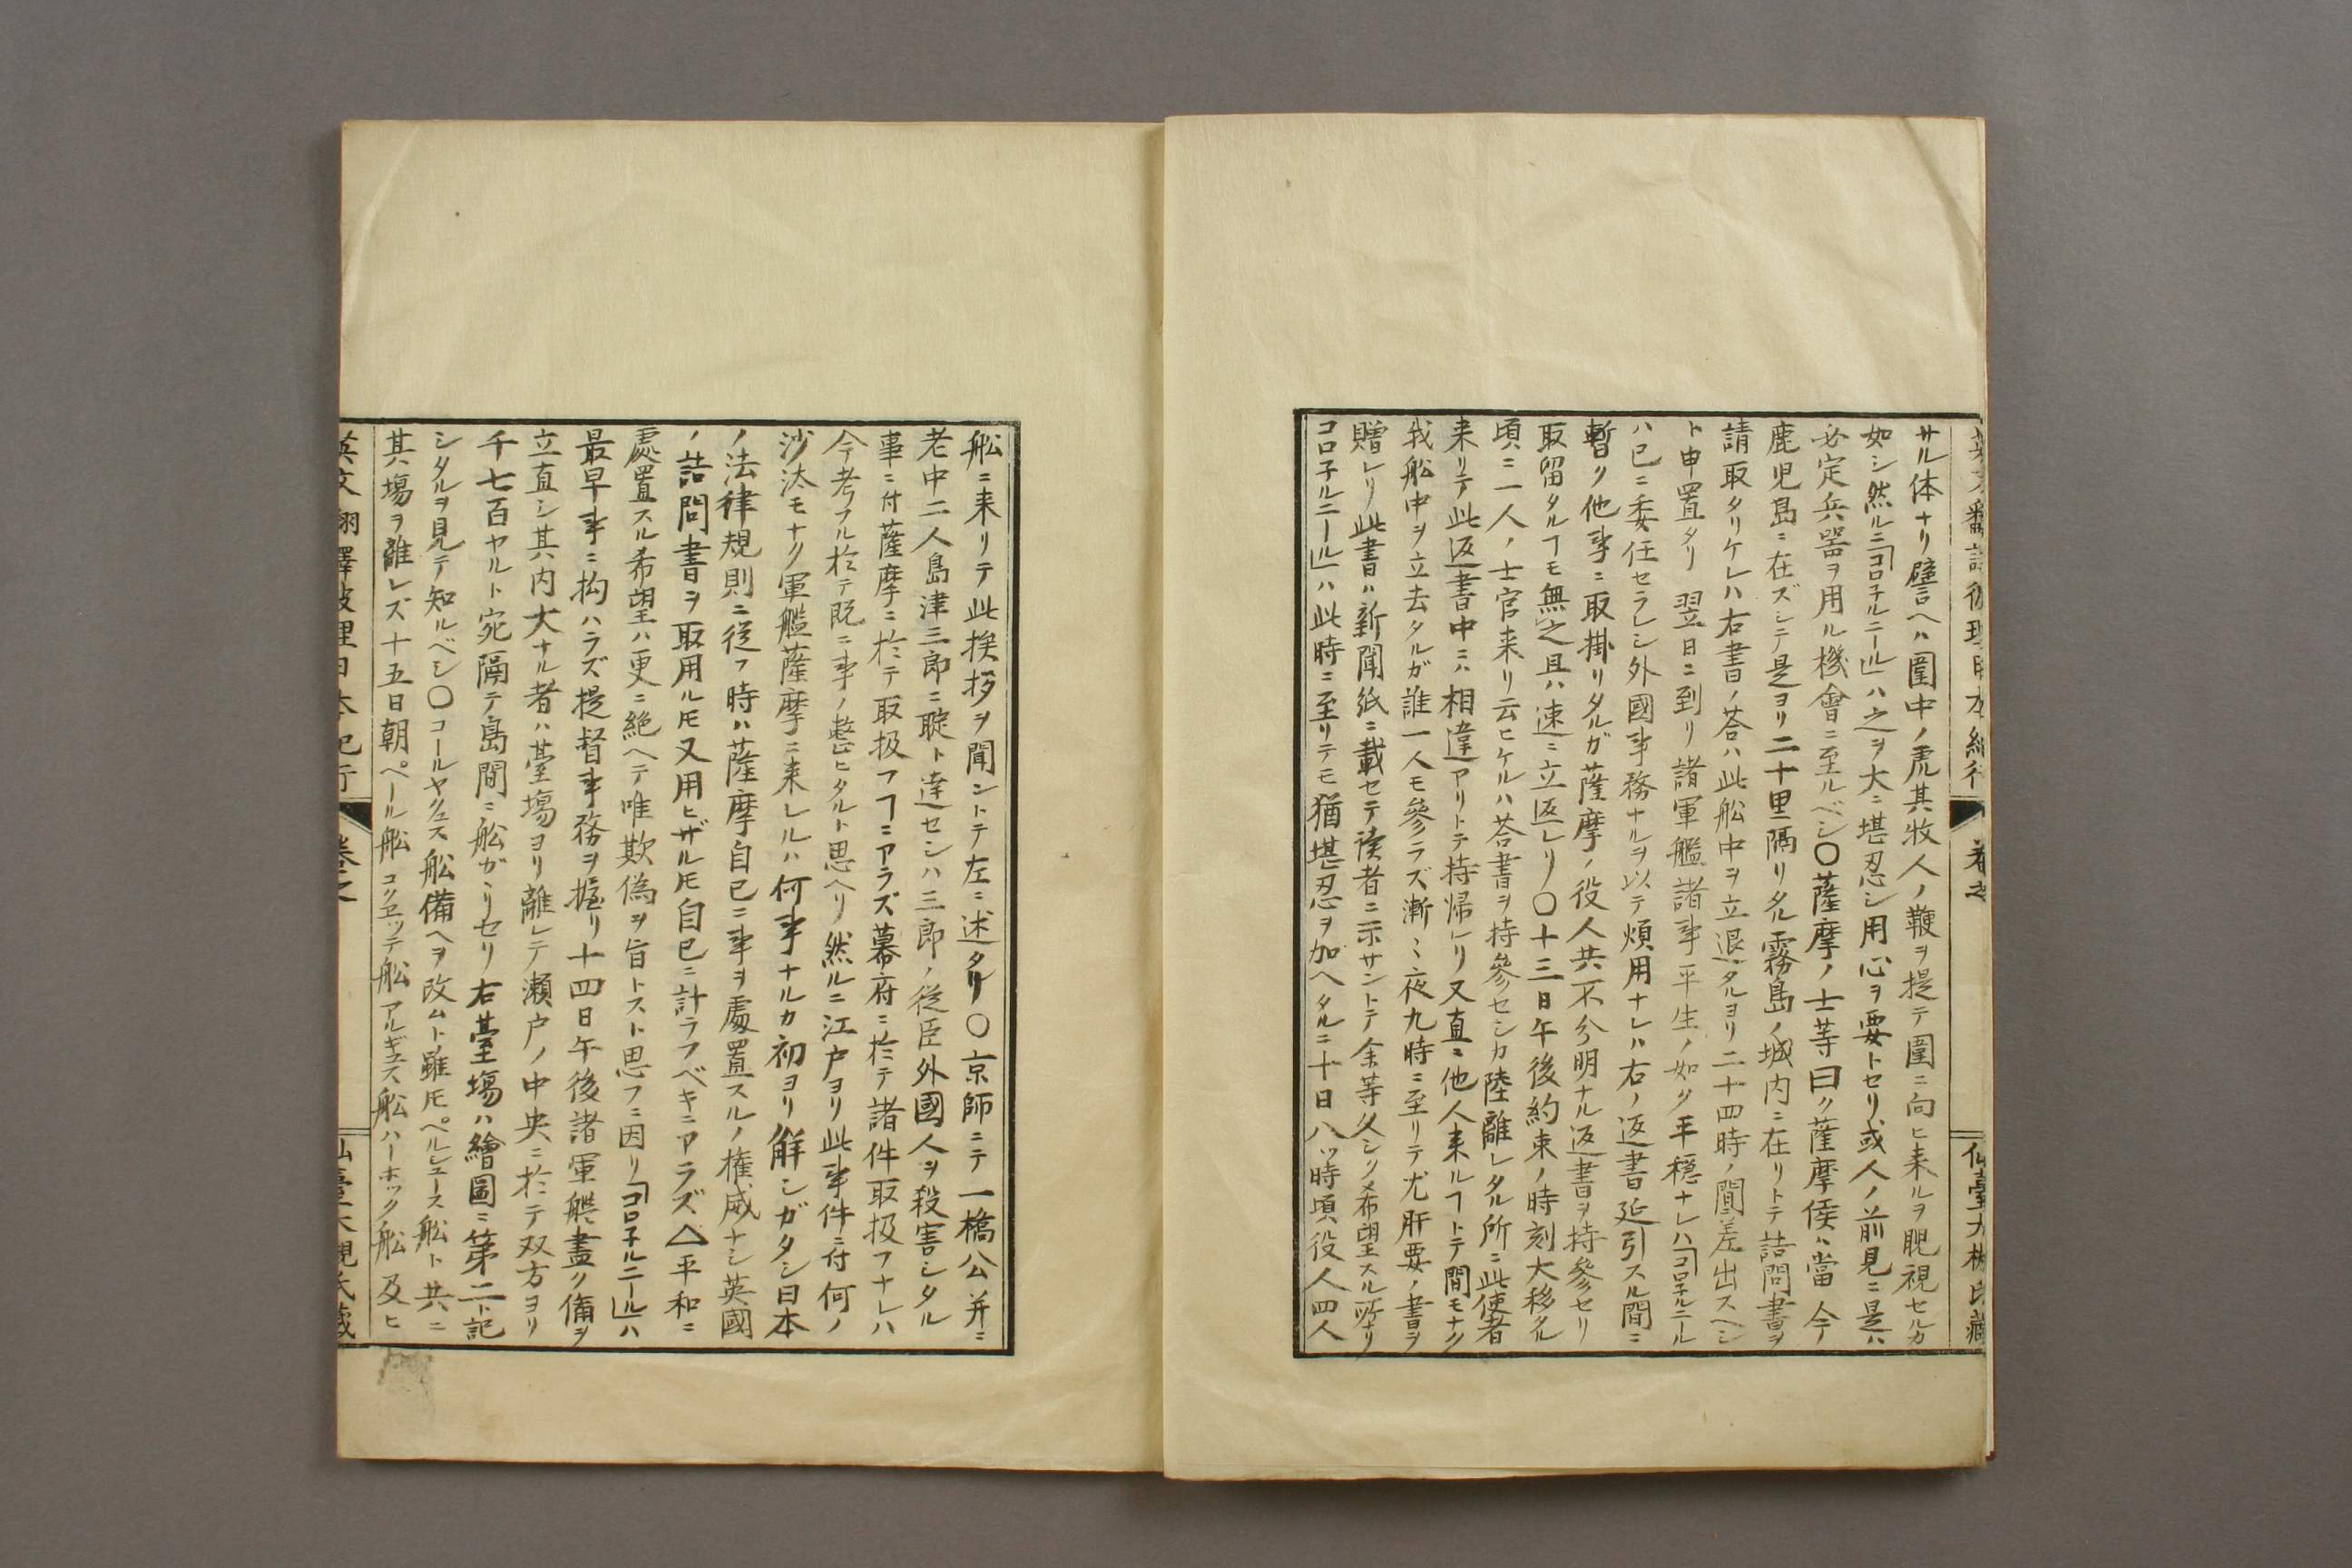 サル体ナリ譬ヘハ圍中ノ虎其牧人ノ鞭ヲ提テ圍ニ向ヒ来ルヲ睨視セルカ
如シ然ルニ「コロ子ルニール」ハ之ヲ大ニ堪忍シ用心ヲ要トセリ或人ノ前見ニ是ハ
必定兵器ヲ用ル機會ニ至ルベシ〇薩摩ノ士等曰ク薩摩侯ハ當今
鹿児島ニ在ズシテ是ヨリ二十里隔リタル霧島ノ城内ニ在リトテ詰問書ヲ
請取タリケレハ右書ノ荅ハ此船中ヲ立退タルヨリ二十四時ノ間ニ差出スヘシ
ト申置タリ翌日ニ到リ諸軍艦諸事平生ノ如ク平穏ナレハ「コロ子ルニール
ハ已ニ委任セラレシ外國事務ナルヲ以テ煩用ナレハ右ノ返書延引スル間ニ
暫ク他事ニ取掛リタルガ薩摩ノ役人共不分明ナル返書ヲ持參セリ
取留タルヿモ無之且ハ速ニ立返レリ〇十三日午後約束ノ時刻大移タル
頃ニ一人ノ士官来リ云ヒケルハ荅書ヲ持參セシカ陸離レタル所ニ此使者
来リテ此返書中ニハ相違アリトテ持帰レリ又直ニ他人来ルヿトテ間モナク
我船中ヲ立去タルガ誰一人モ參ラズ漸〻夜九時ニ至リテ尤肝要ノ書ヲ
贈レリ此書ハ新聞紙ニ載セテ讀者ニ示サントテ余等久シク希望スル所ナリ
コロ子ルニール」ハ此時ニ至リテモ猶堪忍ヲ加ヘタルニ十日八ツ時頃役人四人
舩ニ来リテ此挨拶ヲ聞ントテ左ニ述タリ〇京師ニテ一橋公并ニ
老中二人島津三郎ニ聢ト達セシハ三郎ノ従臣外國人ヲ殺害シタル
事ニ付薩摩ニ於テ取扱フヿニアラズ幕府ニ於テ諸件取扱フナレハ
今考フル於テ既ニ事ノ整ヒタルト思ヘリ然ルニ江戸ヨリ此事件ニ付何ノ
沙汰モナク軍艦薩摩ニ来レルハ何事ナルカ初ヨリ解シガタシ日本
ノ法律規則ニ従フ時ハ薩摩自已ニ事ヲ處置スルノ権威ナシ英國
ノ詰問書ヲ取用ルモ又用ヒザルモ自已ニ計ラフベキニアラズ△平和ニ
處置スル希望ハ更ニ絶ヘテ唯欺偽ヲ旨トスト思フニ因リ「コロ子ルニール」ハ
最早事ニ拘ハラズ提督事務ヲ握リ十四日午後諸軍艦盡ク備ヲ
立直シ其内大ナル者ハ臺場ヨリ離レテ瀬戸ノ中央ニ於テ双方ヨリ
千七百ヤルト宛隔テ島間ニ舩ガヽリセリ右臺塲ハ繪圖ニ第二ト記
シタルヲ見テ知ルベシ〇コールヤクェス舩備ヘヲ改ムト雖モペルシユース舩ト共ニ
其塲ヲ離レズ十五日朝ペール舩コクエッテ舩アルギュス舩ハーホック舩及ヒ